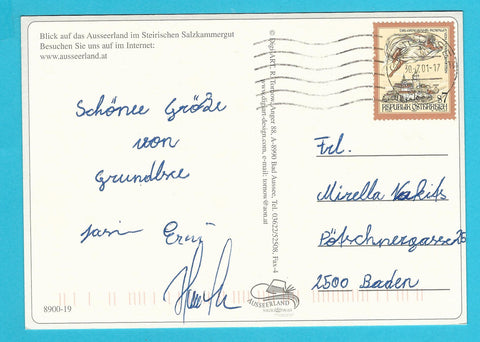 Blick auf das Ausseerland im Steirischen Salzkammergut
Besuchen Sie uns auf im Internet:
www.ausseerland.at
Schöne Grüße
von
Grundlsee
8900-19
© DigitART, R. Tornow, Anger 88, A-8990 Bad Aussee, Tel. 03622/52508, Fax-4
www.digitart-design.com, e-mail: tornow@aon.at
AUSSEERLAND
SALZKAMMERGUT
30.7.01-17
REPUBLIK ÖSTERREICH
S7
Frl.
Mirella
Pötschnergasse 26
2500 Baden